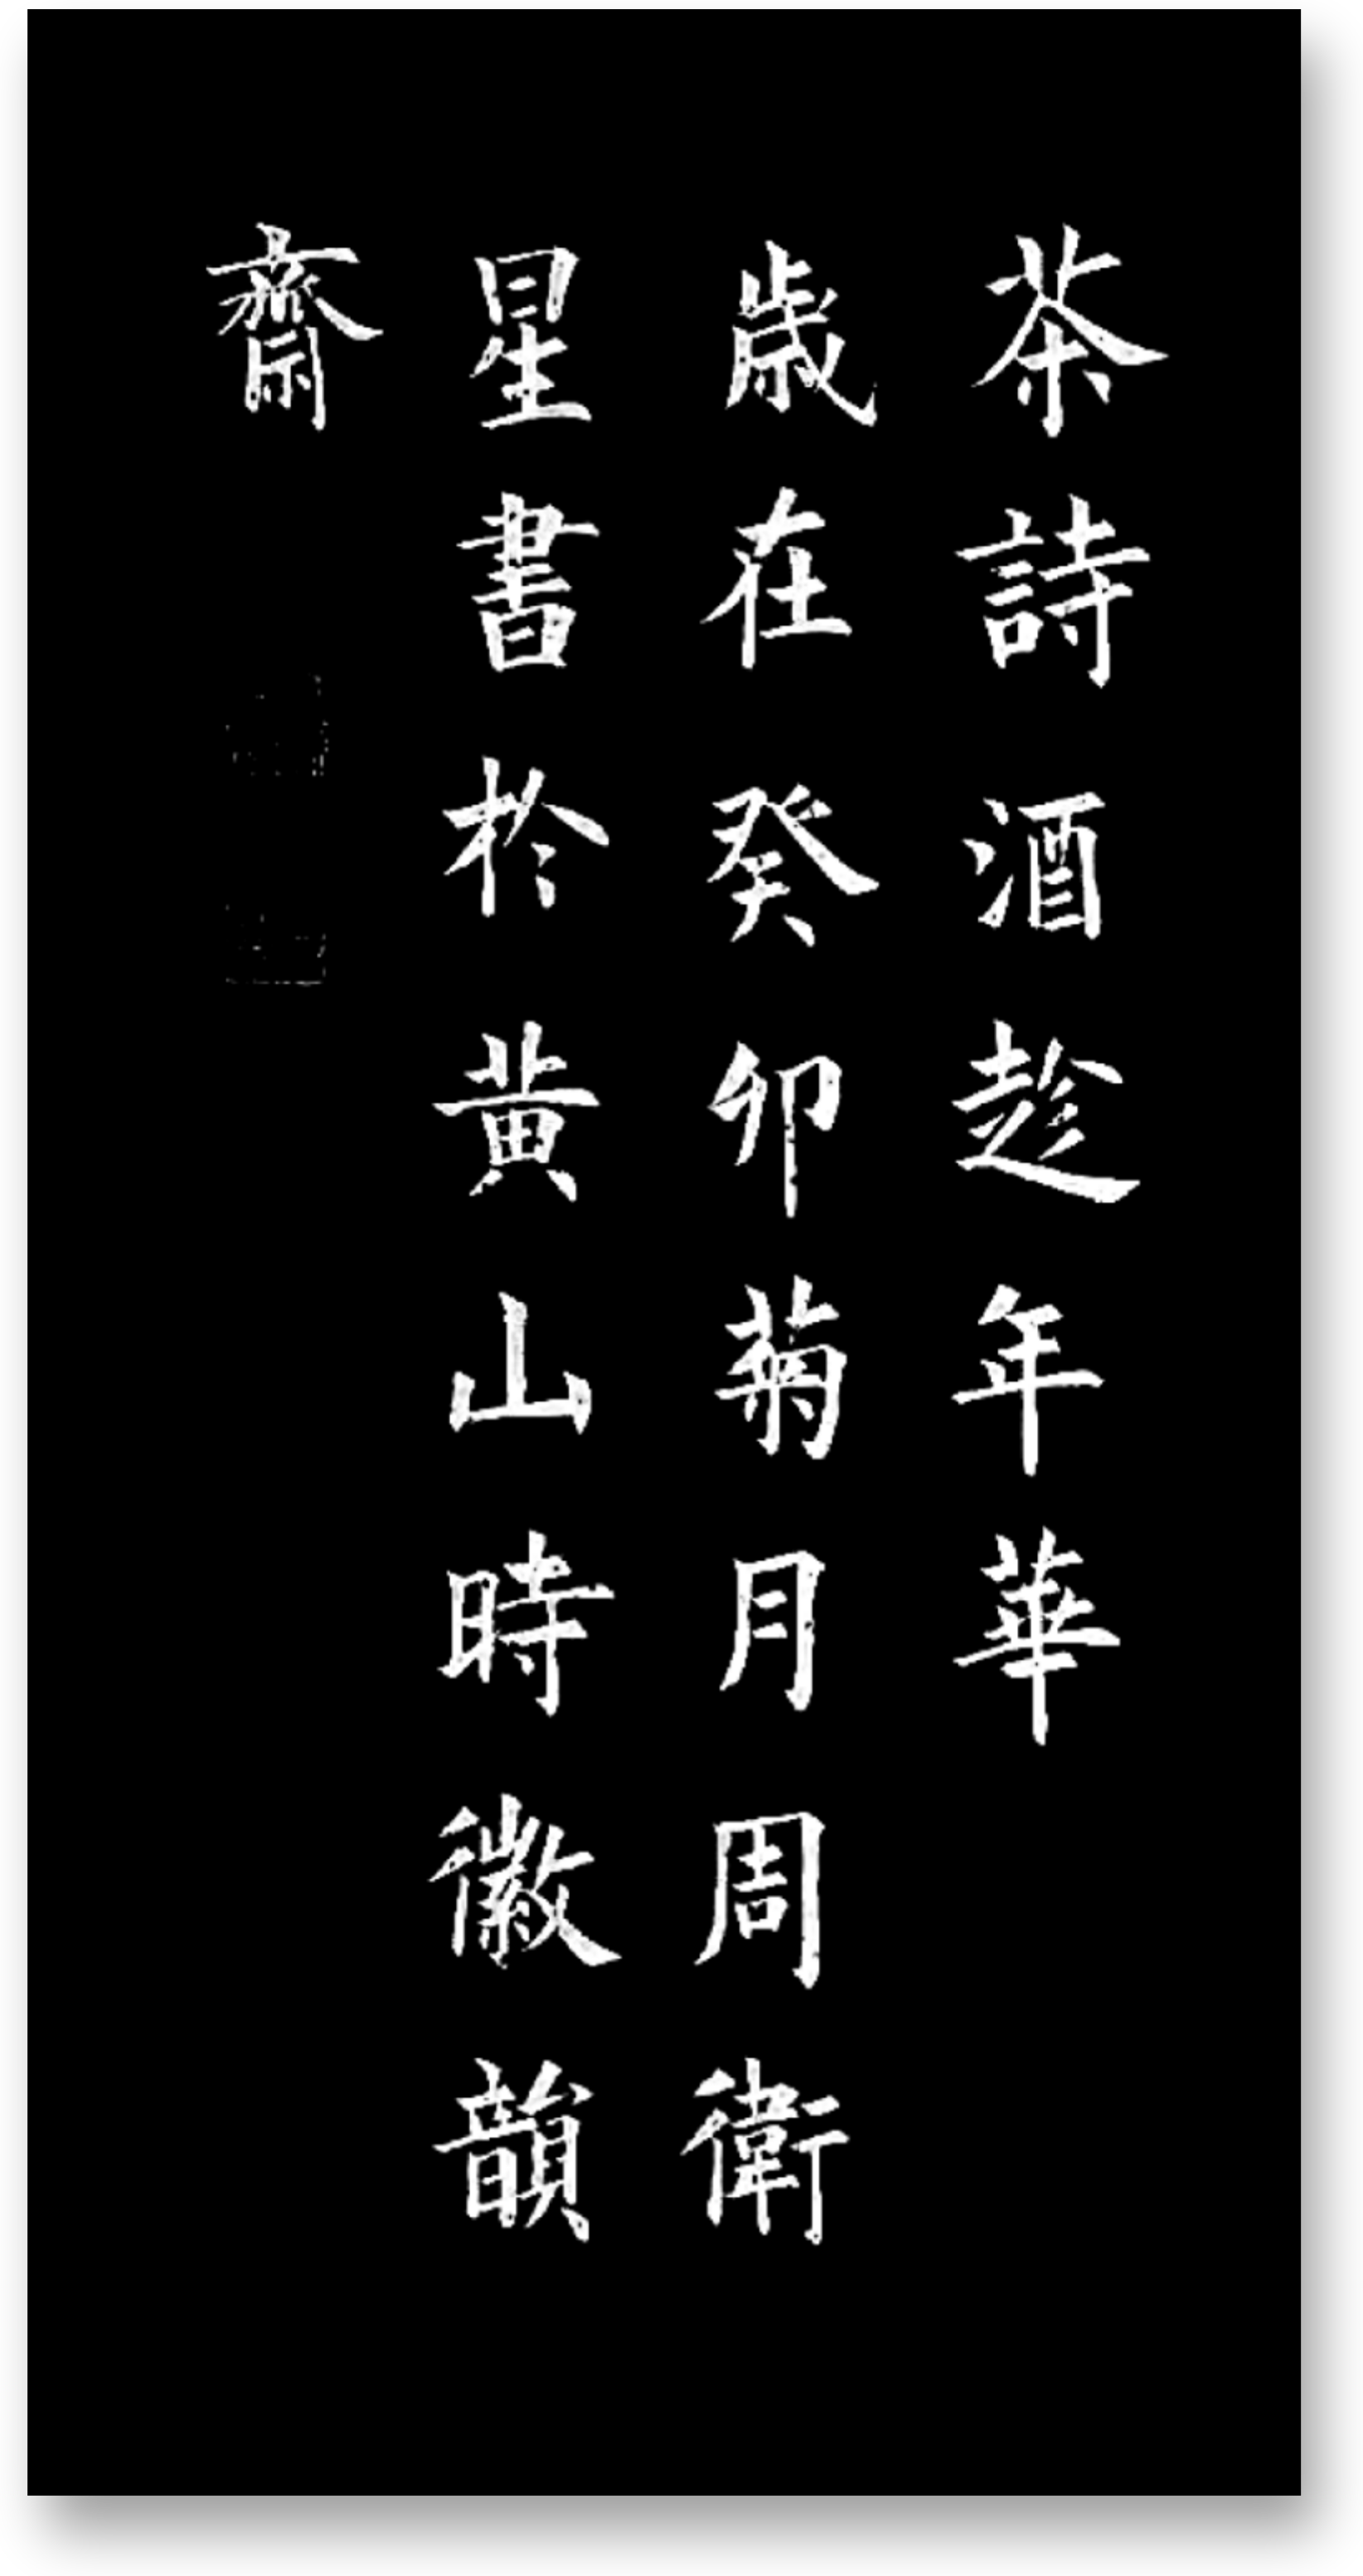 茶詩酒趁年華
歳在癸卯菊月周衛
星書於黃山時徽韻
齋